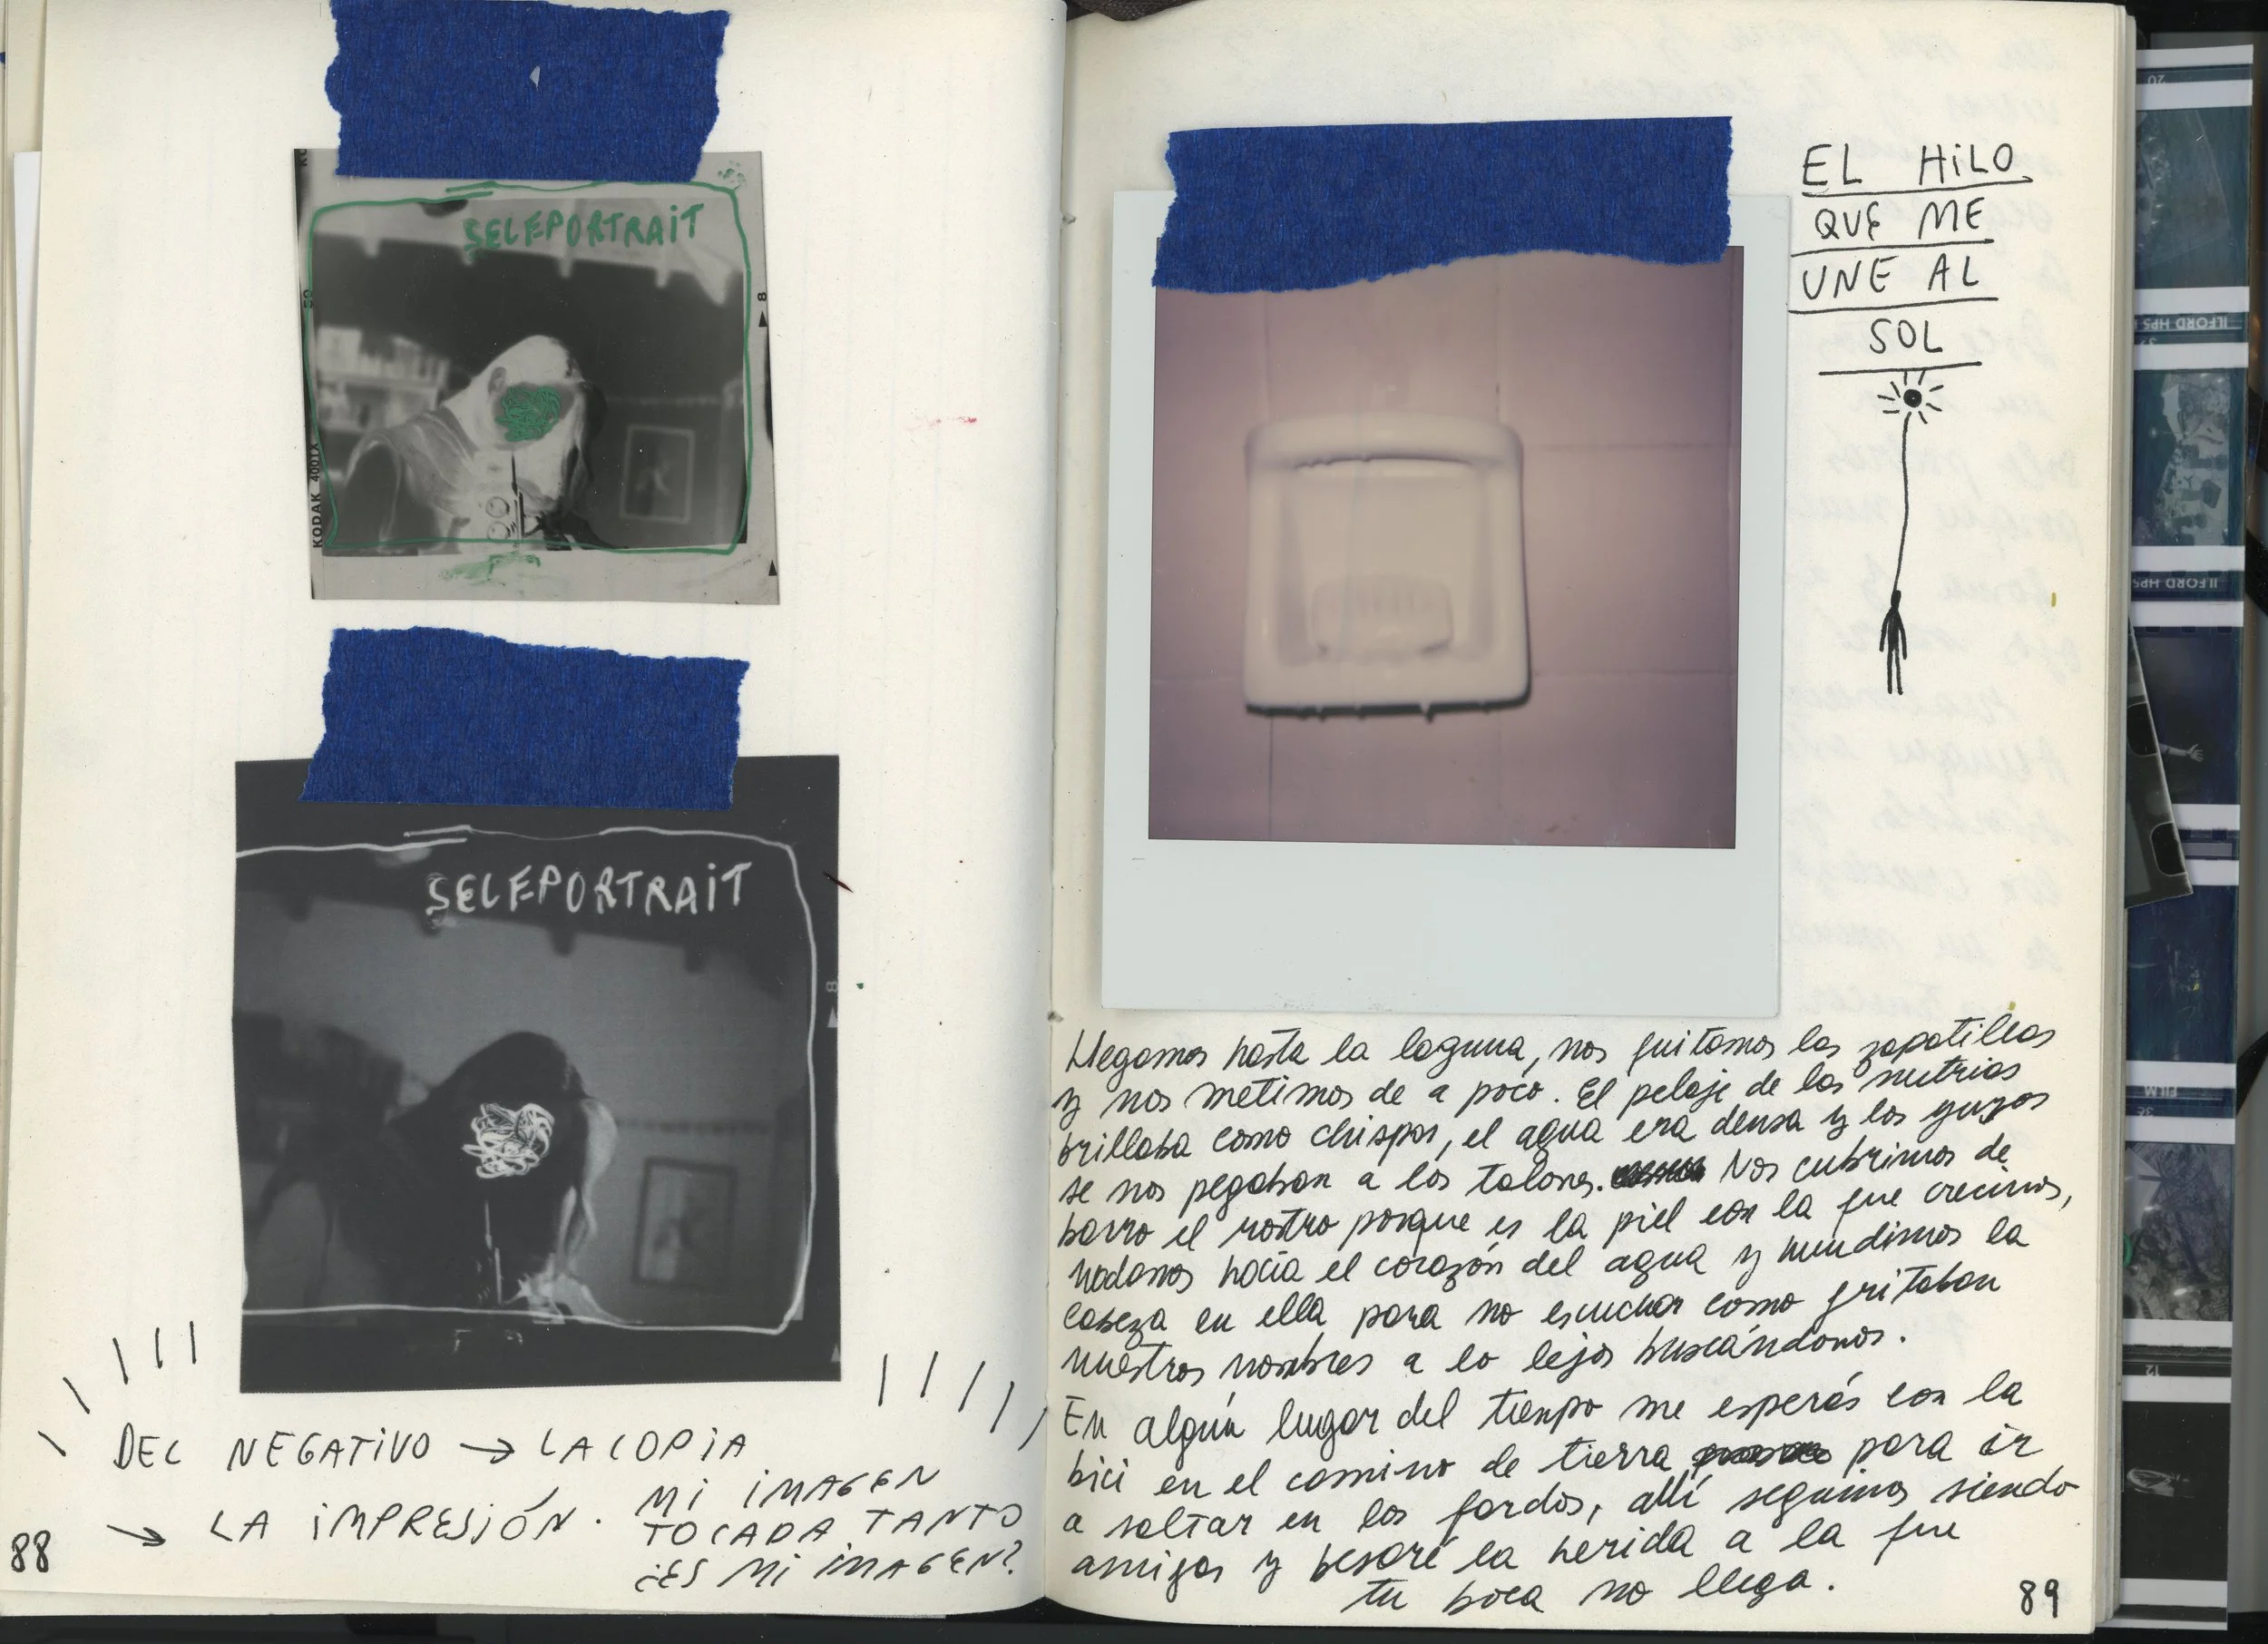 SELFPORTRAIT
KODAK 400TX
8
SELFPORTRAIT
8
DEL NEGATIVO → LA COPIA
→ LA IMPRESIÓN. MI IMAGEN
TOCADA TANTO
¿ES MI IMAGEN?
88
EL HiLO
QUE ME
UNE AL
SOL
Llegamos hasta la laguna, nos quitamos las zapatillas
y nos metimos de a poco. El pelaje de las nutrias
brillaba como chispas, el agua era densa y los yuyos
se nos pegaban a los talones. Nos cubrimos de
barro el rostro porque es la piel con la que crecimos,
nadamos hacia el corazón del agua y hundimos la
cabeza en ella para no escuchar como gritaban
nuestros nombres a lo lejos buscándonos.
En algún lugar del tiempo me esperás con la
bici en el camino de tierra para ir
a saltar en los fardos, allí seguimos siendo
amigos y besaré la herida a la que
tu boca no llega.
89
20
ILFORD HP5
ILFORD HP5
FILM
12